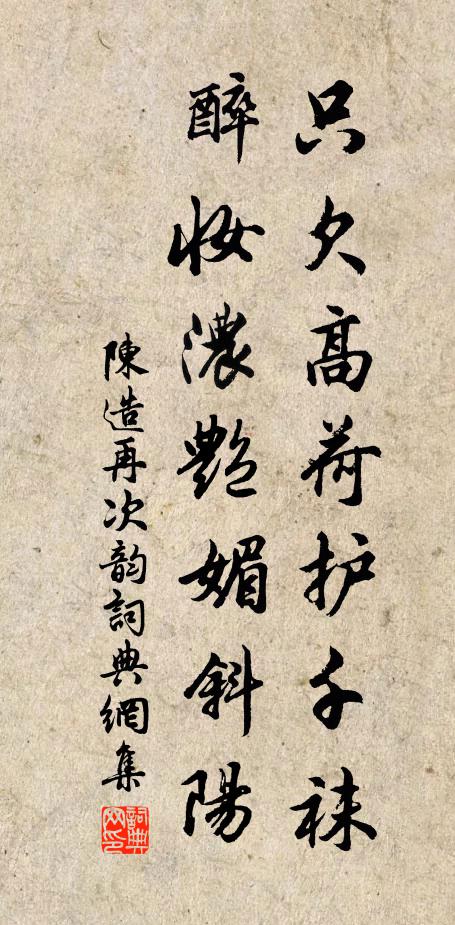 只欠高荷护千袜
醉妝濃艷媚斜陽
陳造再次韵詞典網集
詞典網印